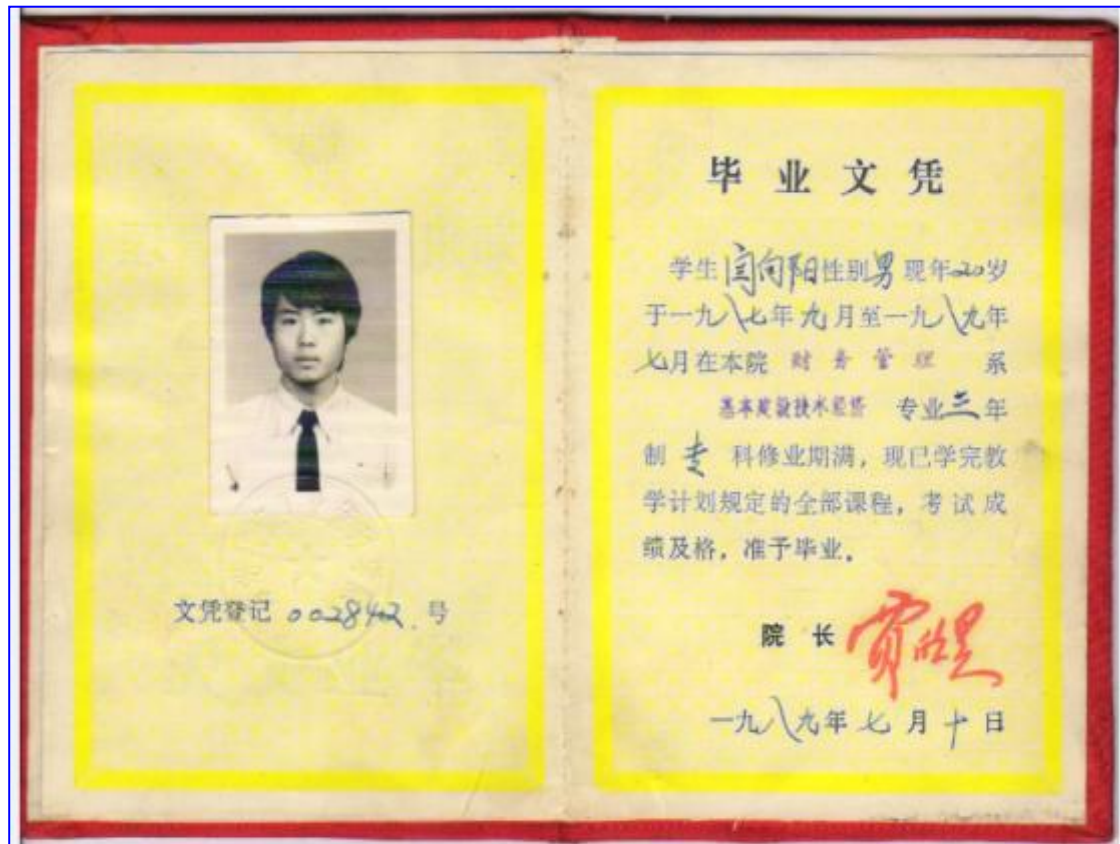 文凭登记 002842 号
毕业文凭
学生闫向阳性别男现年20岁
于一九八七年九月至一九八九年
七月在本院 财务管理 系
基本建设技术经济 专业二年
制 专 科修业期满，现已学完教
学计划规定的全部课程，考试成
绩及格，准予毕业。
院长
一九八九年七月十日